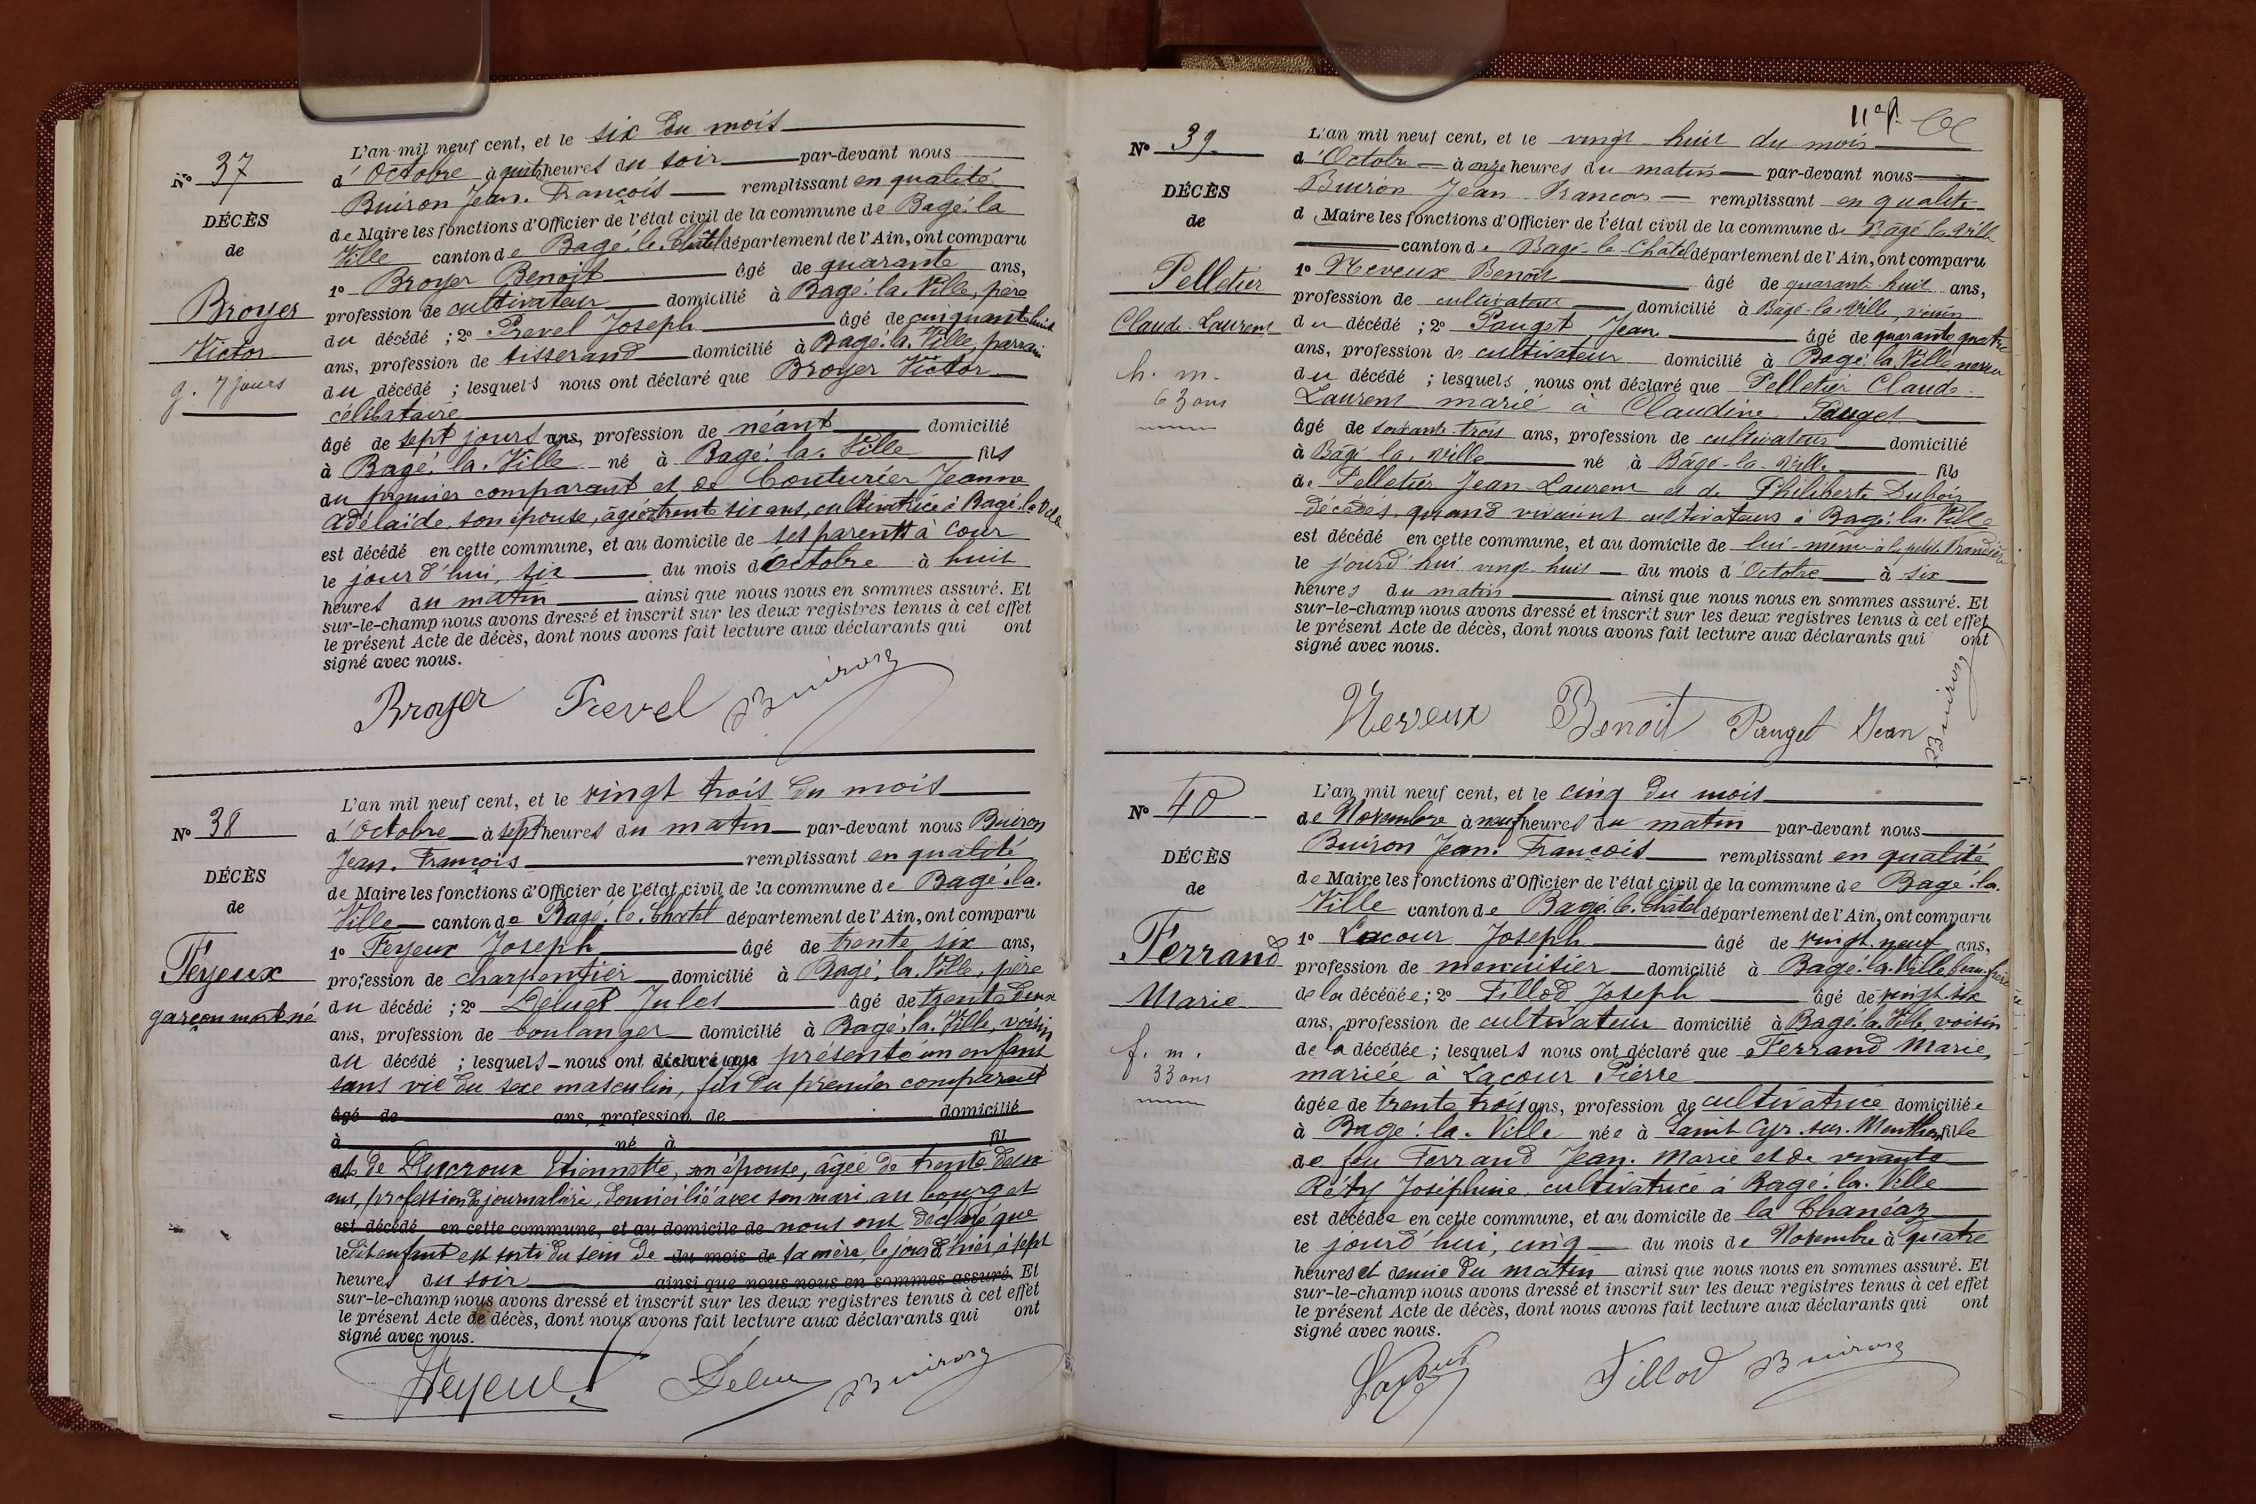 N° 37
DÉCÈS
de
Broyer
Victor
g. 7 jours
L'an mil neuf cent, et le six du mois
d'Octobre à huit heures du soir par-devant nous
Buiron Jean. François remplissant en qualité
de Maire les fonctions d'Officier de l'état civil de la commune de Bagé. la
Ville canton de Bagé. le. Châtel département de l'Ain, ont comparu
1° Broyer Benoît âgé de quarante ans,
profession de cultivateur domicilié à Bagé. la. Ville, père
du décédé ; 2° Prevel Joseph âgé de cinquante huit
ans, profession de tisserand domicilié à Bagé. la. Ville, parrain
du décédé ; lesquels nous ont déclaré que Broyer Victor
célibataire
âgé de sept jours ans, profession de néant domicilié
à Bagé. la. Ville né à Bagé. la. Ville fils
du premier comparant et de Couturier Jeanne
Adélaïde, son épouse, âgée de trente six ans, cultivatrice à Bagé. la Ville
est décédé en cette commune, et au domicile de ses parents à Cour
le jourd'hui, six du mois d'Octobre à huit
heures du matin ainsi que nous nous en sommes assuré. Et
sur-le-champ nous avons dressé et inscrit sur les deux registres tenus à cet effet
le présent Acte de décès, dont nous avons fait lecture aux déclarants qui ont
signé avec nous.
Broyer Prevel Buiron
N° 38
DÉCÈS
de
Feyeux
garçon mort né
L'an mil neuf cent, et le vingt trois du mois
d'Octobre à sept heures du matin par-devant nous Buiron
Jean. François remplissant en qualité
de Maire les fonctions d'Officier de l'état civil de la commune de Bagé. la.
Ville canton de Bagé. le. Châtel département de l'Ain, ont comparu
1° Feyeux Joseph âgé de trente six ans,
profession de charpentier domicilié à Bagé. la. Ville, père
du décédé ; 2° Jules âgé de trente deux
ans, profession de boulanger domicilié à Bagé. la. Ville, voisin
du décédé ; lesquels nous ont déclaré que présenté un enfant
sans vie du sexe masculin, fils du premier comparant
âgé de ans, profession de domicilié
à né à fil
et de Ducroux Etiennette, son épouse, âgée de trente deux
ans, profession de journalière, domicilié avec son mari, au bourg et
est décédé en cette commune, et au domicile de nous ont déclaré que
le dit enfant est sorti du sein de du mois de sa mère, le jour d'hier à sept
heures du soir ainsi que nous nous en sommes assuré. Et
sur-le-champ nous avons dressé et inscrit sur les deux registres tenus à cet effet
le présent Acte de décès, dont nous avons fait lecture aux déclarants qui ont
signé avec nous.
Feyeux Buiron
11e
N° 39
DÉCÈS
de
Pelletier
Claude-Laurent
h. m.
63 ans
L'an mil neuf cent, et le vingt huit du mois
d'Octobre à onze heures du matin par-devant nous
Buiron Jean François remplissant en qualité
d Maire les fonctions d'Officier de l'état civil de la commune de Bâgé la Ville
canton de Bagé-le-Châtel département de l'Ain, ont comparu
1° Neveux Benoît âgé de quarante huit ans,
profession de cultivateur domicilié à Bâgé-la-Ville, voisin
du décédé ; 2° Pauget Jean âgé de quarante quatre
ans, profession de cultivateur domicilié à Bagé. la. Ville, neveu
du décédé ; lesquels nous ont déclaré que Pelletier Claude-
Laurent marié à Claudine Pauget
âgé de soixante-trois ans, profession de cultivateur domicilié
à Bâgé la. Ville né à Bâgé-la-Ville fils
de Pelletier Jean-Laurent et de Philiberte Dubois
décédés, quand vivaient cultivateurs à Bagé. la. Ville
est décédé en cette commune, et au domicile de lui-même à la petite
le jourd'hui vingt-huit du mois d'Octobre à six
heures du matin ainsi que nous nous en sommes assuré. Et
sur-le-champ nous avons dressé et inscrit sur les deux registres tenus à cet effet
le présent Acte de décès, dont nous avons fait lecture aux déclarants qui ont
signé avec nous.
Neveux Benoît Pauget Jean Buiron
N° 40
DÉCÈS
de
Ferrand
Marie
f. m.
33 ans
L'an mil neuf cent, et le cinq du mois
de Novembre à neuf heures du matin par-devant nous
Buiron Jean. François remplissant en qualité
de Maire les fonctions d'Officier de l'état civil de la commune de Bagé. la.
Ville canton de Bagé. le. Châtel département de l'Ain, ont comparu
1° Lacour Joseph âgé de vingt. neuf ans,
profession de menuisier domicilié à Bagé. la. Ville, beau-frère
de la décédée ; 2° Tillod Joseph âgé de vingt six
ans, profession de cultivateur domicilié à Bagé. la. Ville voisin
de la décédée ; lesquels nous ont déclaré que Ferrand Marie,
mariée à Lacour Pierre
âgée de trente trois ans, profession de cultivatrice domiciliée
à Bagé. la. Ville née à Saint Cyr. sur. Menthon fille
de feu Ferrand Jean. Marie et de vivante
Réty Joséphine, cultivatrice à Bagé. la. Ville
est décédée en cette commune, et au domicile de la Chanéaz
le jourd'hui, cinq du mois de Novembre à quatre
heures et demie du matin ainsi que nous nous en sommes assuré. Et
sur-le-champ nous avons dressé et inscrit sur les deux registres tenus à cet effet
le présent Acte de décès, dont nous avons fait lecture aux déclarants qui ont
signé avec nous.
Tillod Buiron